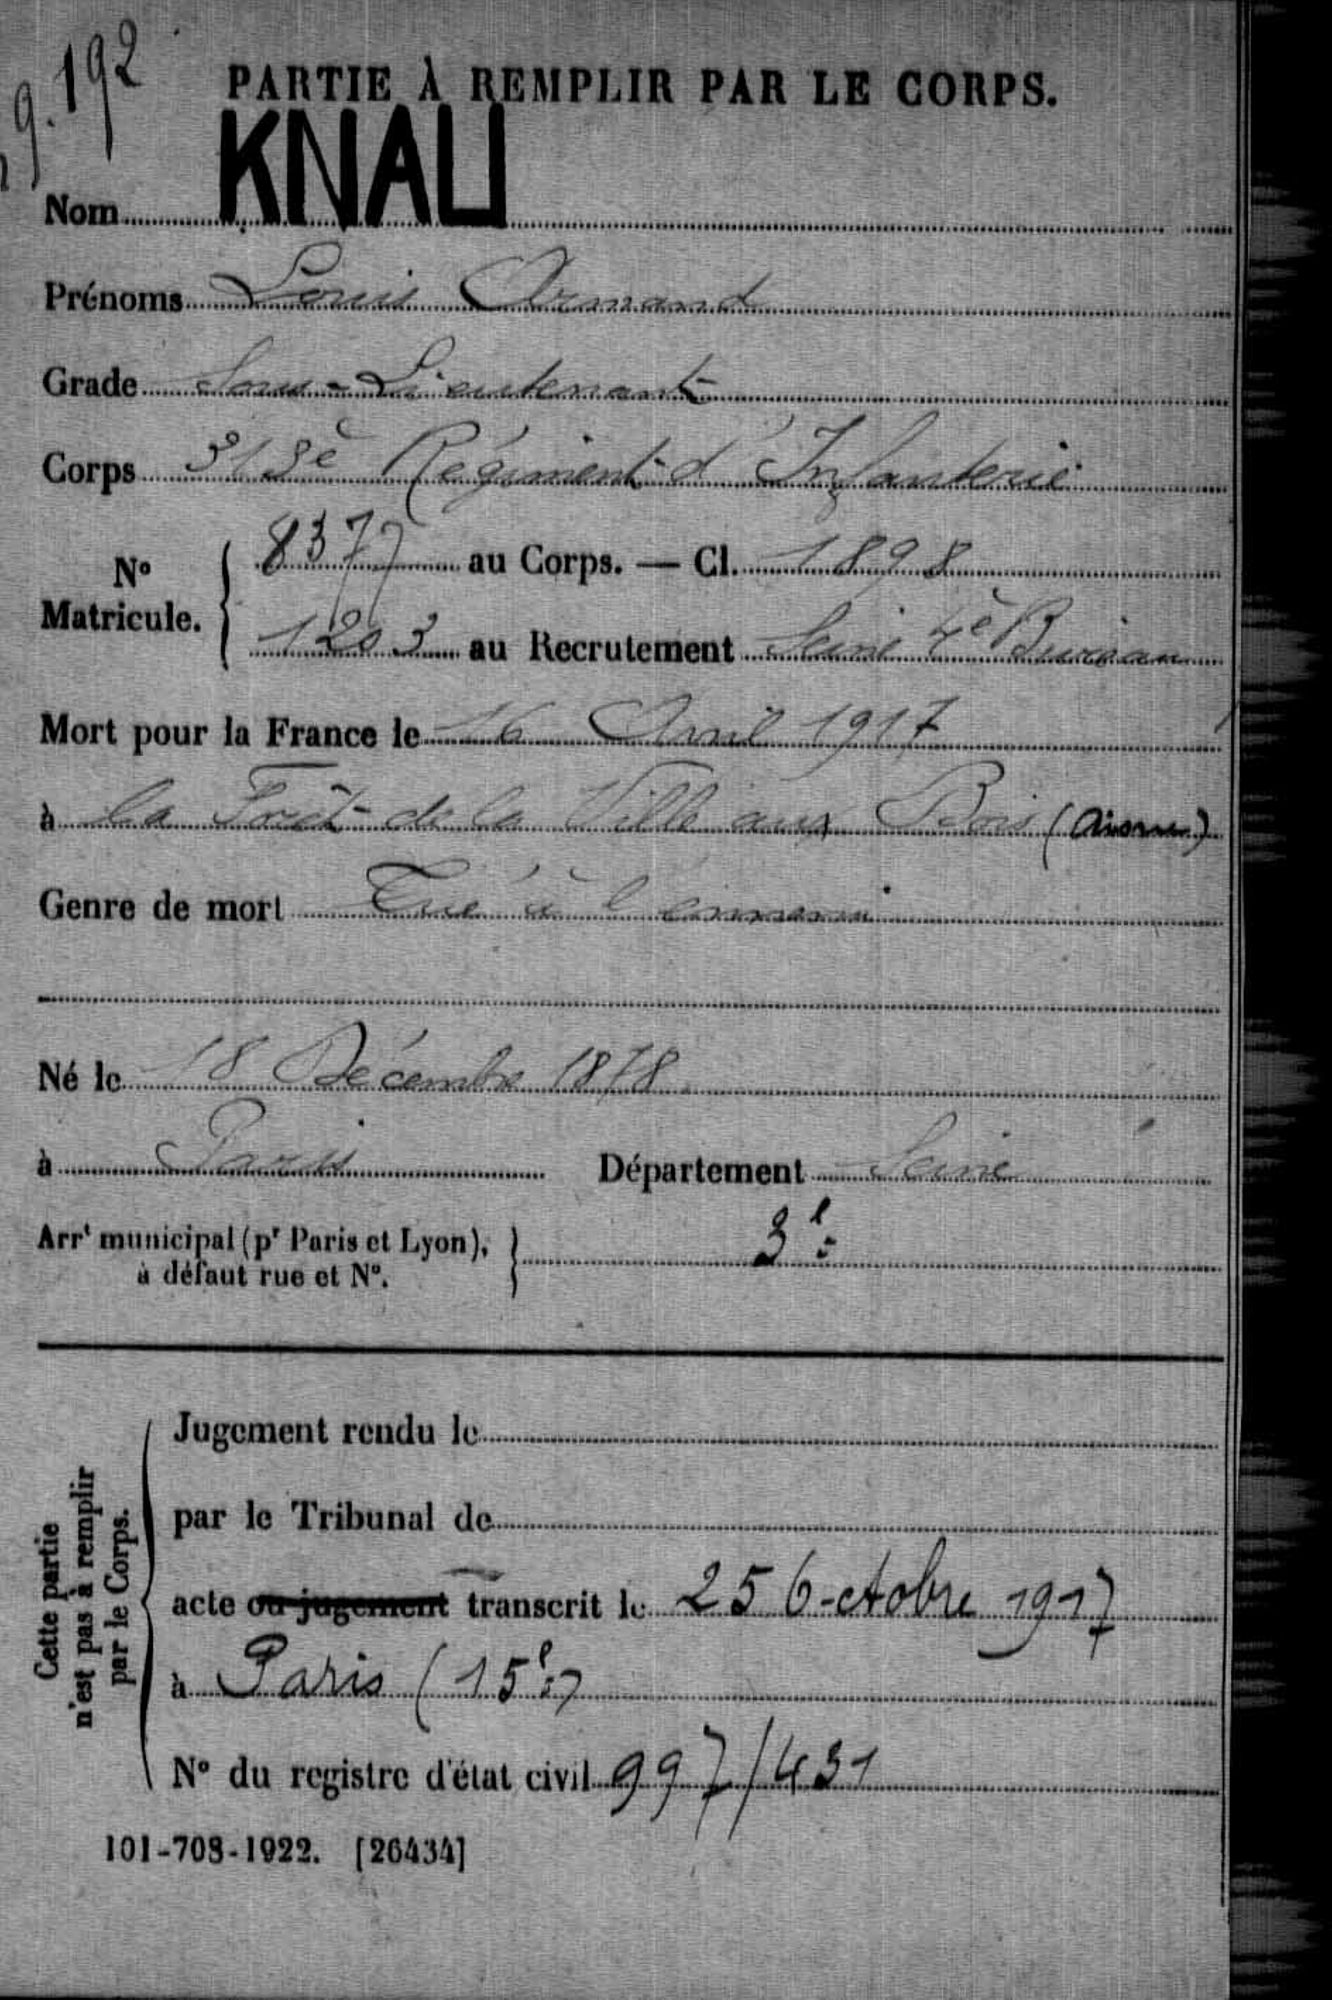 9.192
PARTIE À REMPLIR PAR LE CORPS.
Nom KNAU
Prénoms Louis Armand
Grade Sous-Lieutenant
Corps 313è Régiment d'Infanterie
N° Matricule. 8377 au Corps. — Cl. 1898
1203 au Recrutement Seine 4è Bureau
Mort pour la France le 16 Avril 1917
à la Forêt de la Ville aux Bois (Aisne)
Genre de mort Tué à l'ennemi
Né le 18 Décembre 1878
à Paris Département Seine
Arrt municipal (pr Paris et Lyon), à défaut rue et N°. 3e
Cette partie n'est pas à remplir par le Corps.
Jugement rendu le
par le Tribunal de
acte ou jugement transcrit le 25 Octobre 1917
à Paris (15e)
N° du registre d'état civil 997/431
101-708-1922. [26434]